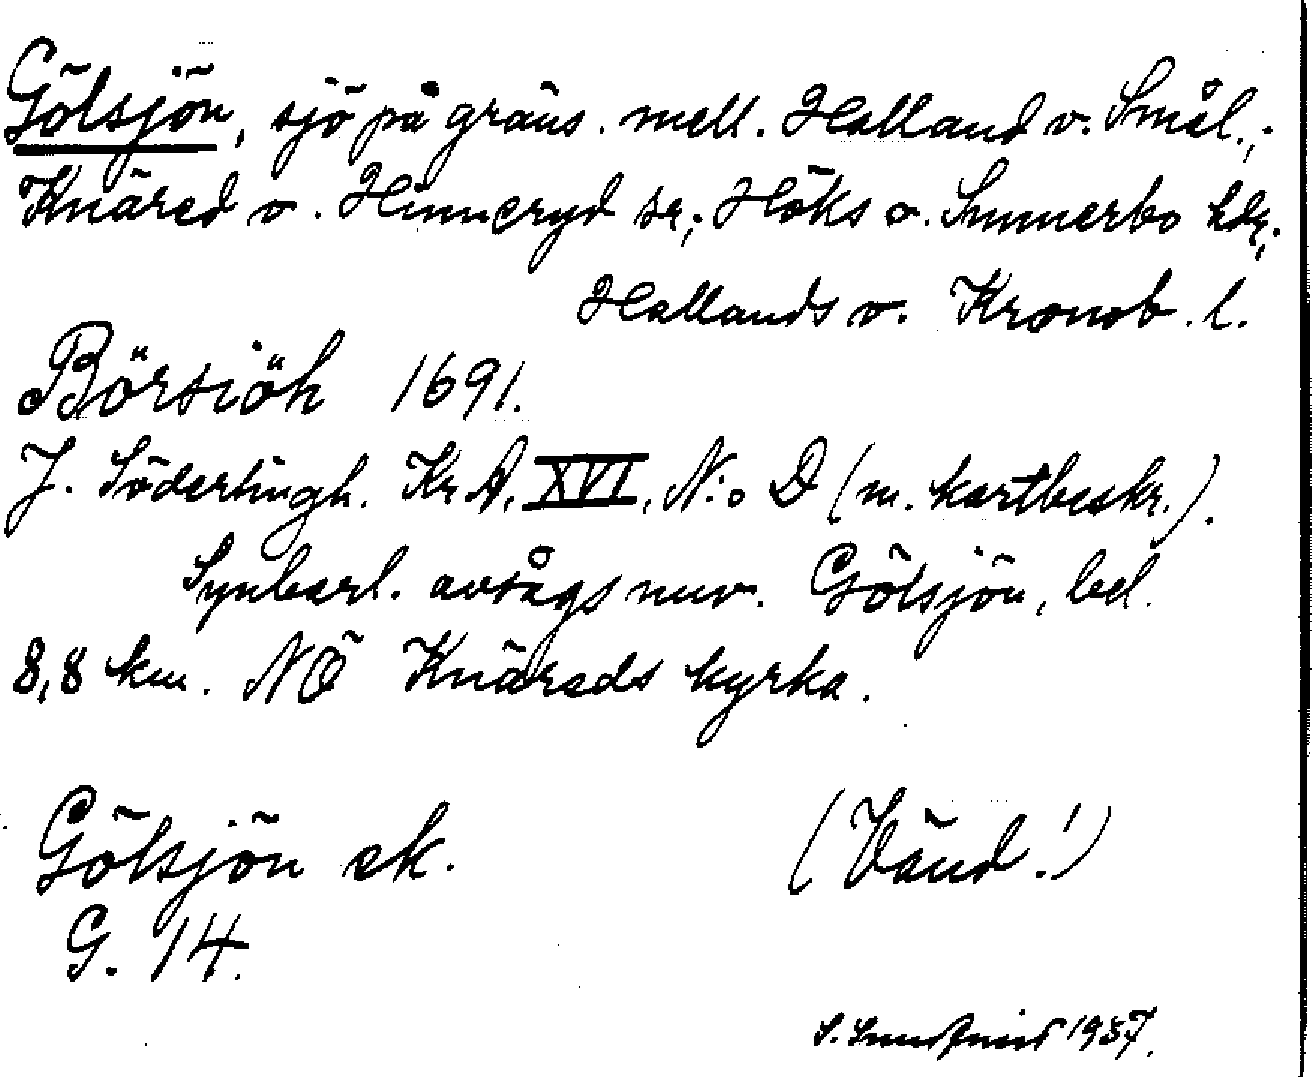 Gölsjön, sjö på gräns. mell. Halland o. Smål.;
Knäred o. Hinneryd sr; Höks o. Sunnerbo hdr;
Hallands o. Kronob. l.
Börsiöh 1691.
J. Söderlingh. Kr A. XVI, N:o D (m. kartbeskr.).
Synbarl. avsågs nuv. Gölsjön, bel.
8,8 km. NÖ Knäreds kyrka.
Gölsjön ek.
(Vänd!)
G. 14.
S. 1937.